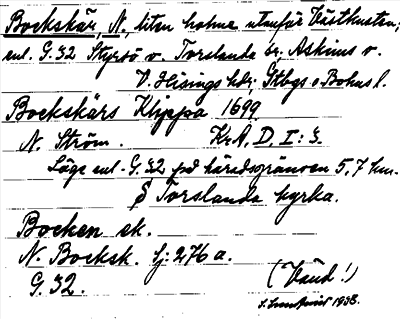 Bockskär, N., liten holme utanför Västkusten;
enl. G. 32 Styrsö o. Torslanda sr. Askims o.
V. Hisings hdr. Gtbgs o Bohus l.
Bockskärs Klippa 1699
N. Ström. Kr A, D, I: 3.
Läge enl. G. 32 på häradsgränsen 5,7 km.
S Torslanda kyrka.
Bocken sk.
N. Bocksk. Sj: 276 a.
G. 32. (Vänd!)
1938.